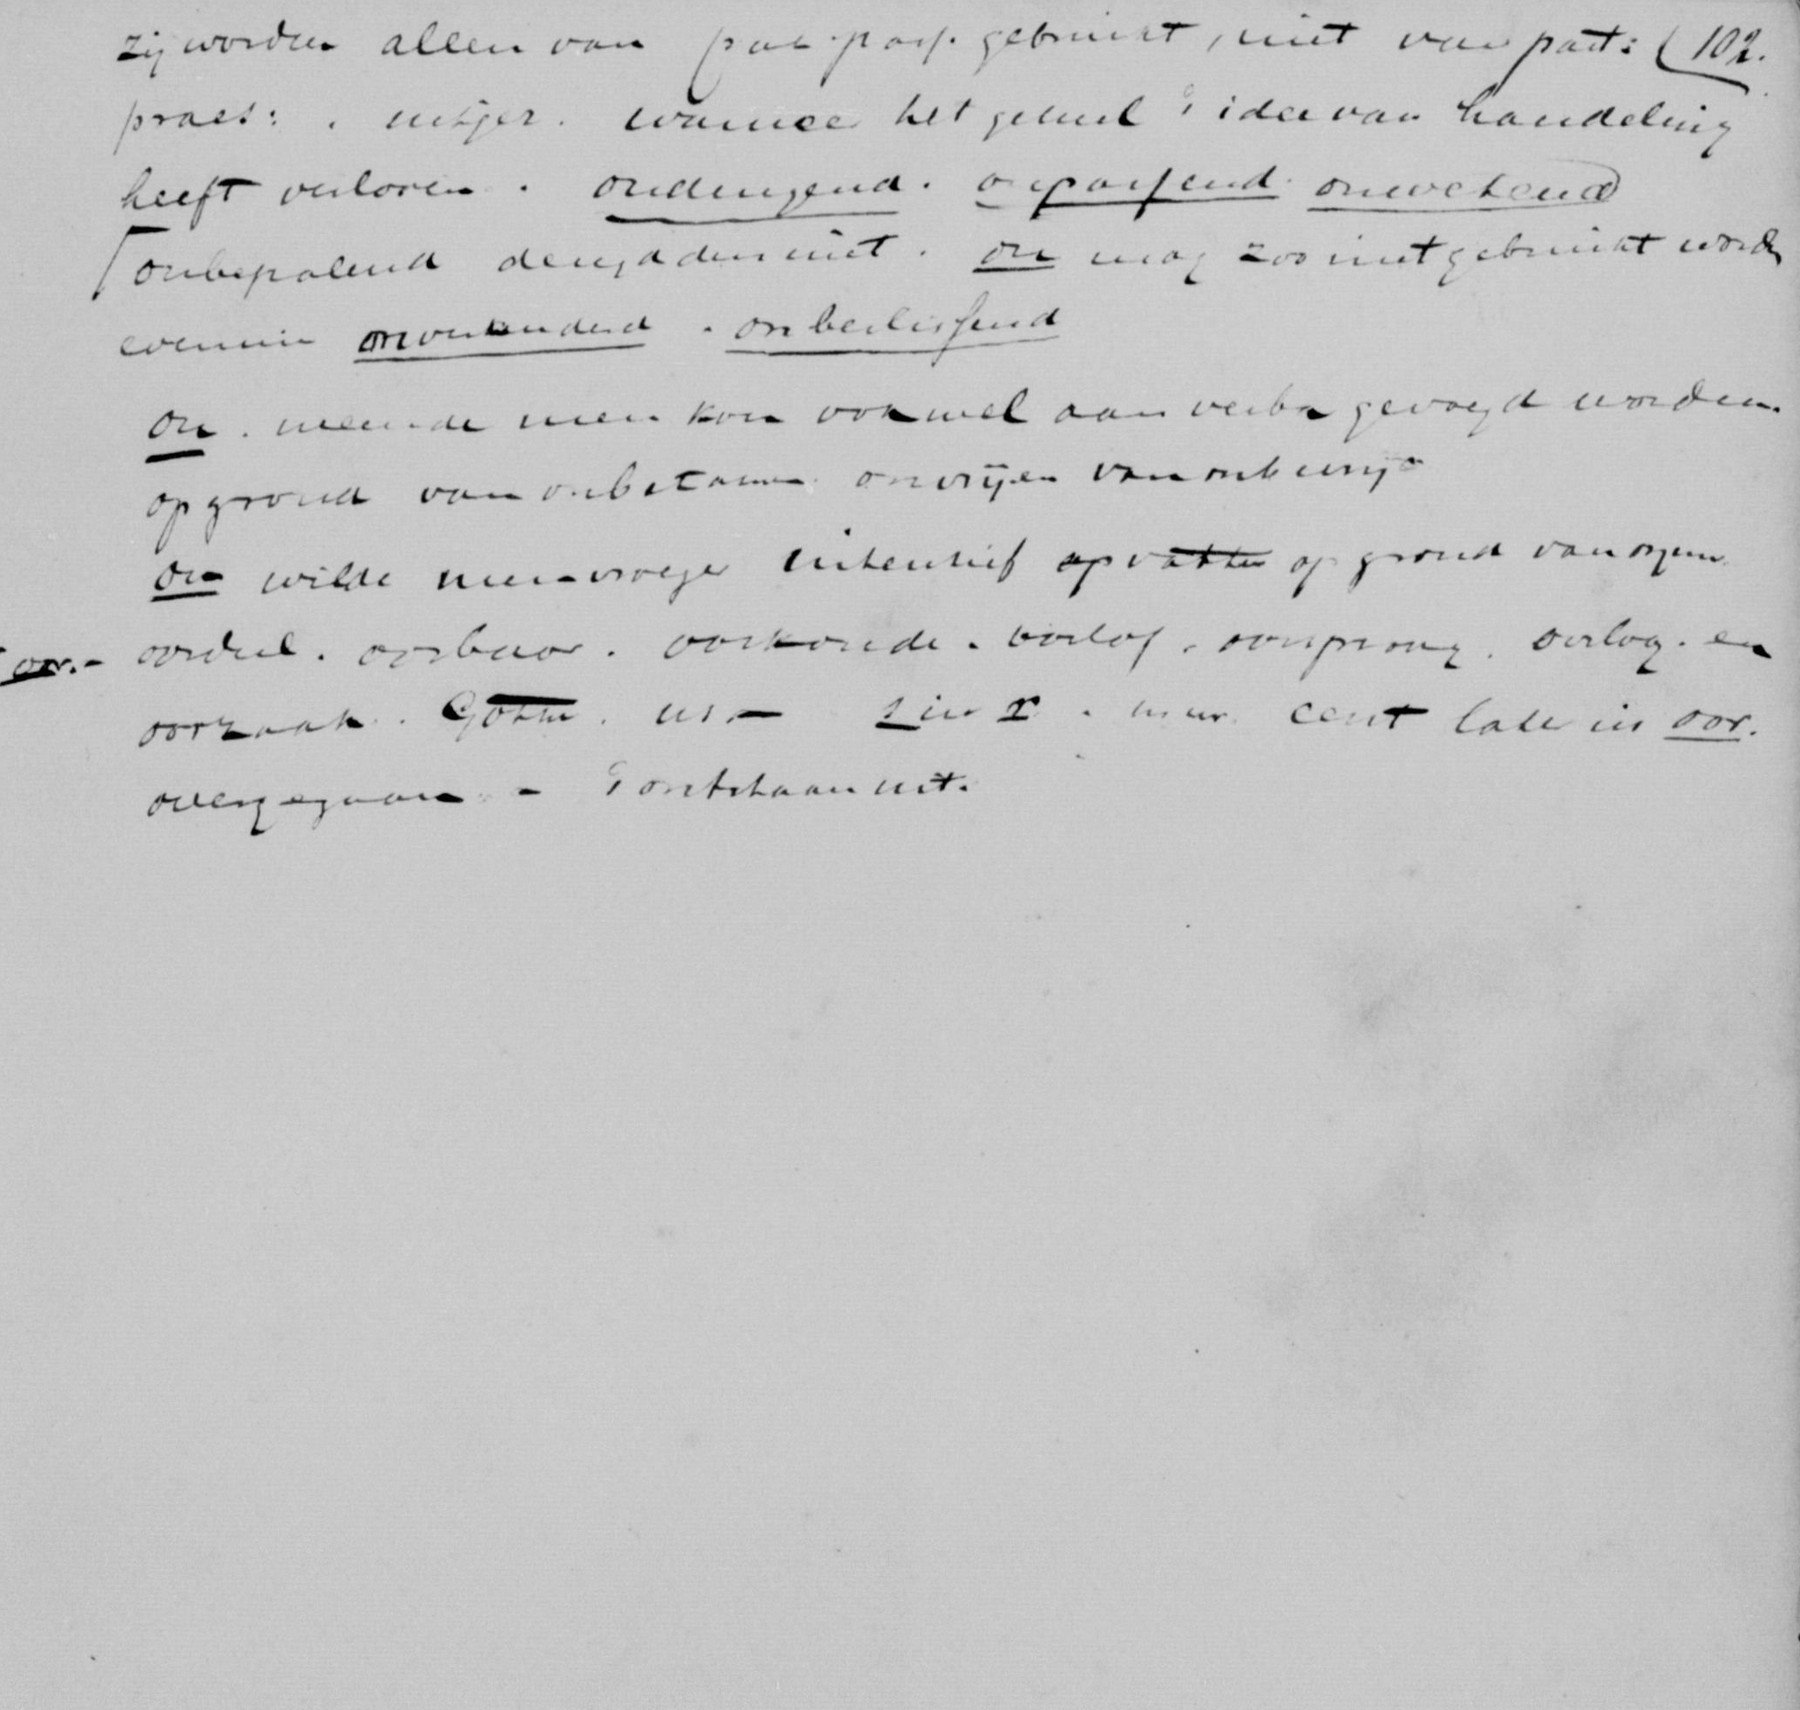 zij worden allen van part. pass. gebruikt, niet van part: (102.
praes: . uitger. wanneer het geheel 't idee van handeling
heeft verloren. ondeugend. onpassend. onwetend
onbepalend deugdden niet. on mag zoo niet gebruikt worden
evenmin onveranderd. onbeslissend
on. meende men kon ook wel aan verba gevoegd worden.
op grond van onbetamen. onvrijen van
on wilde men vroeger intensief opvatten op grond van
oor.- oordeel. oorbaar. oorkonde. oorlof. oorsprong. oorlog. en
oorzaak. Gothe. us.- s in r. eerst later in oor.
overgegaan - 't ontstaan uit.